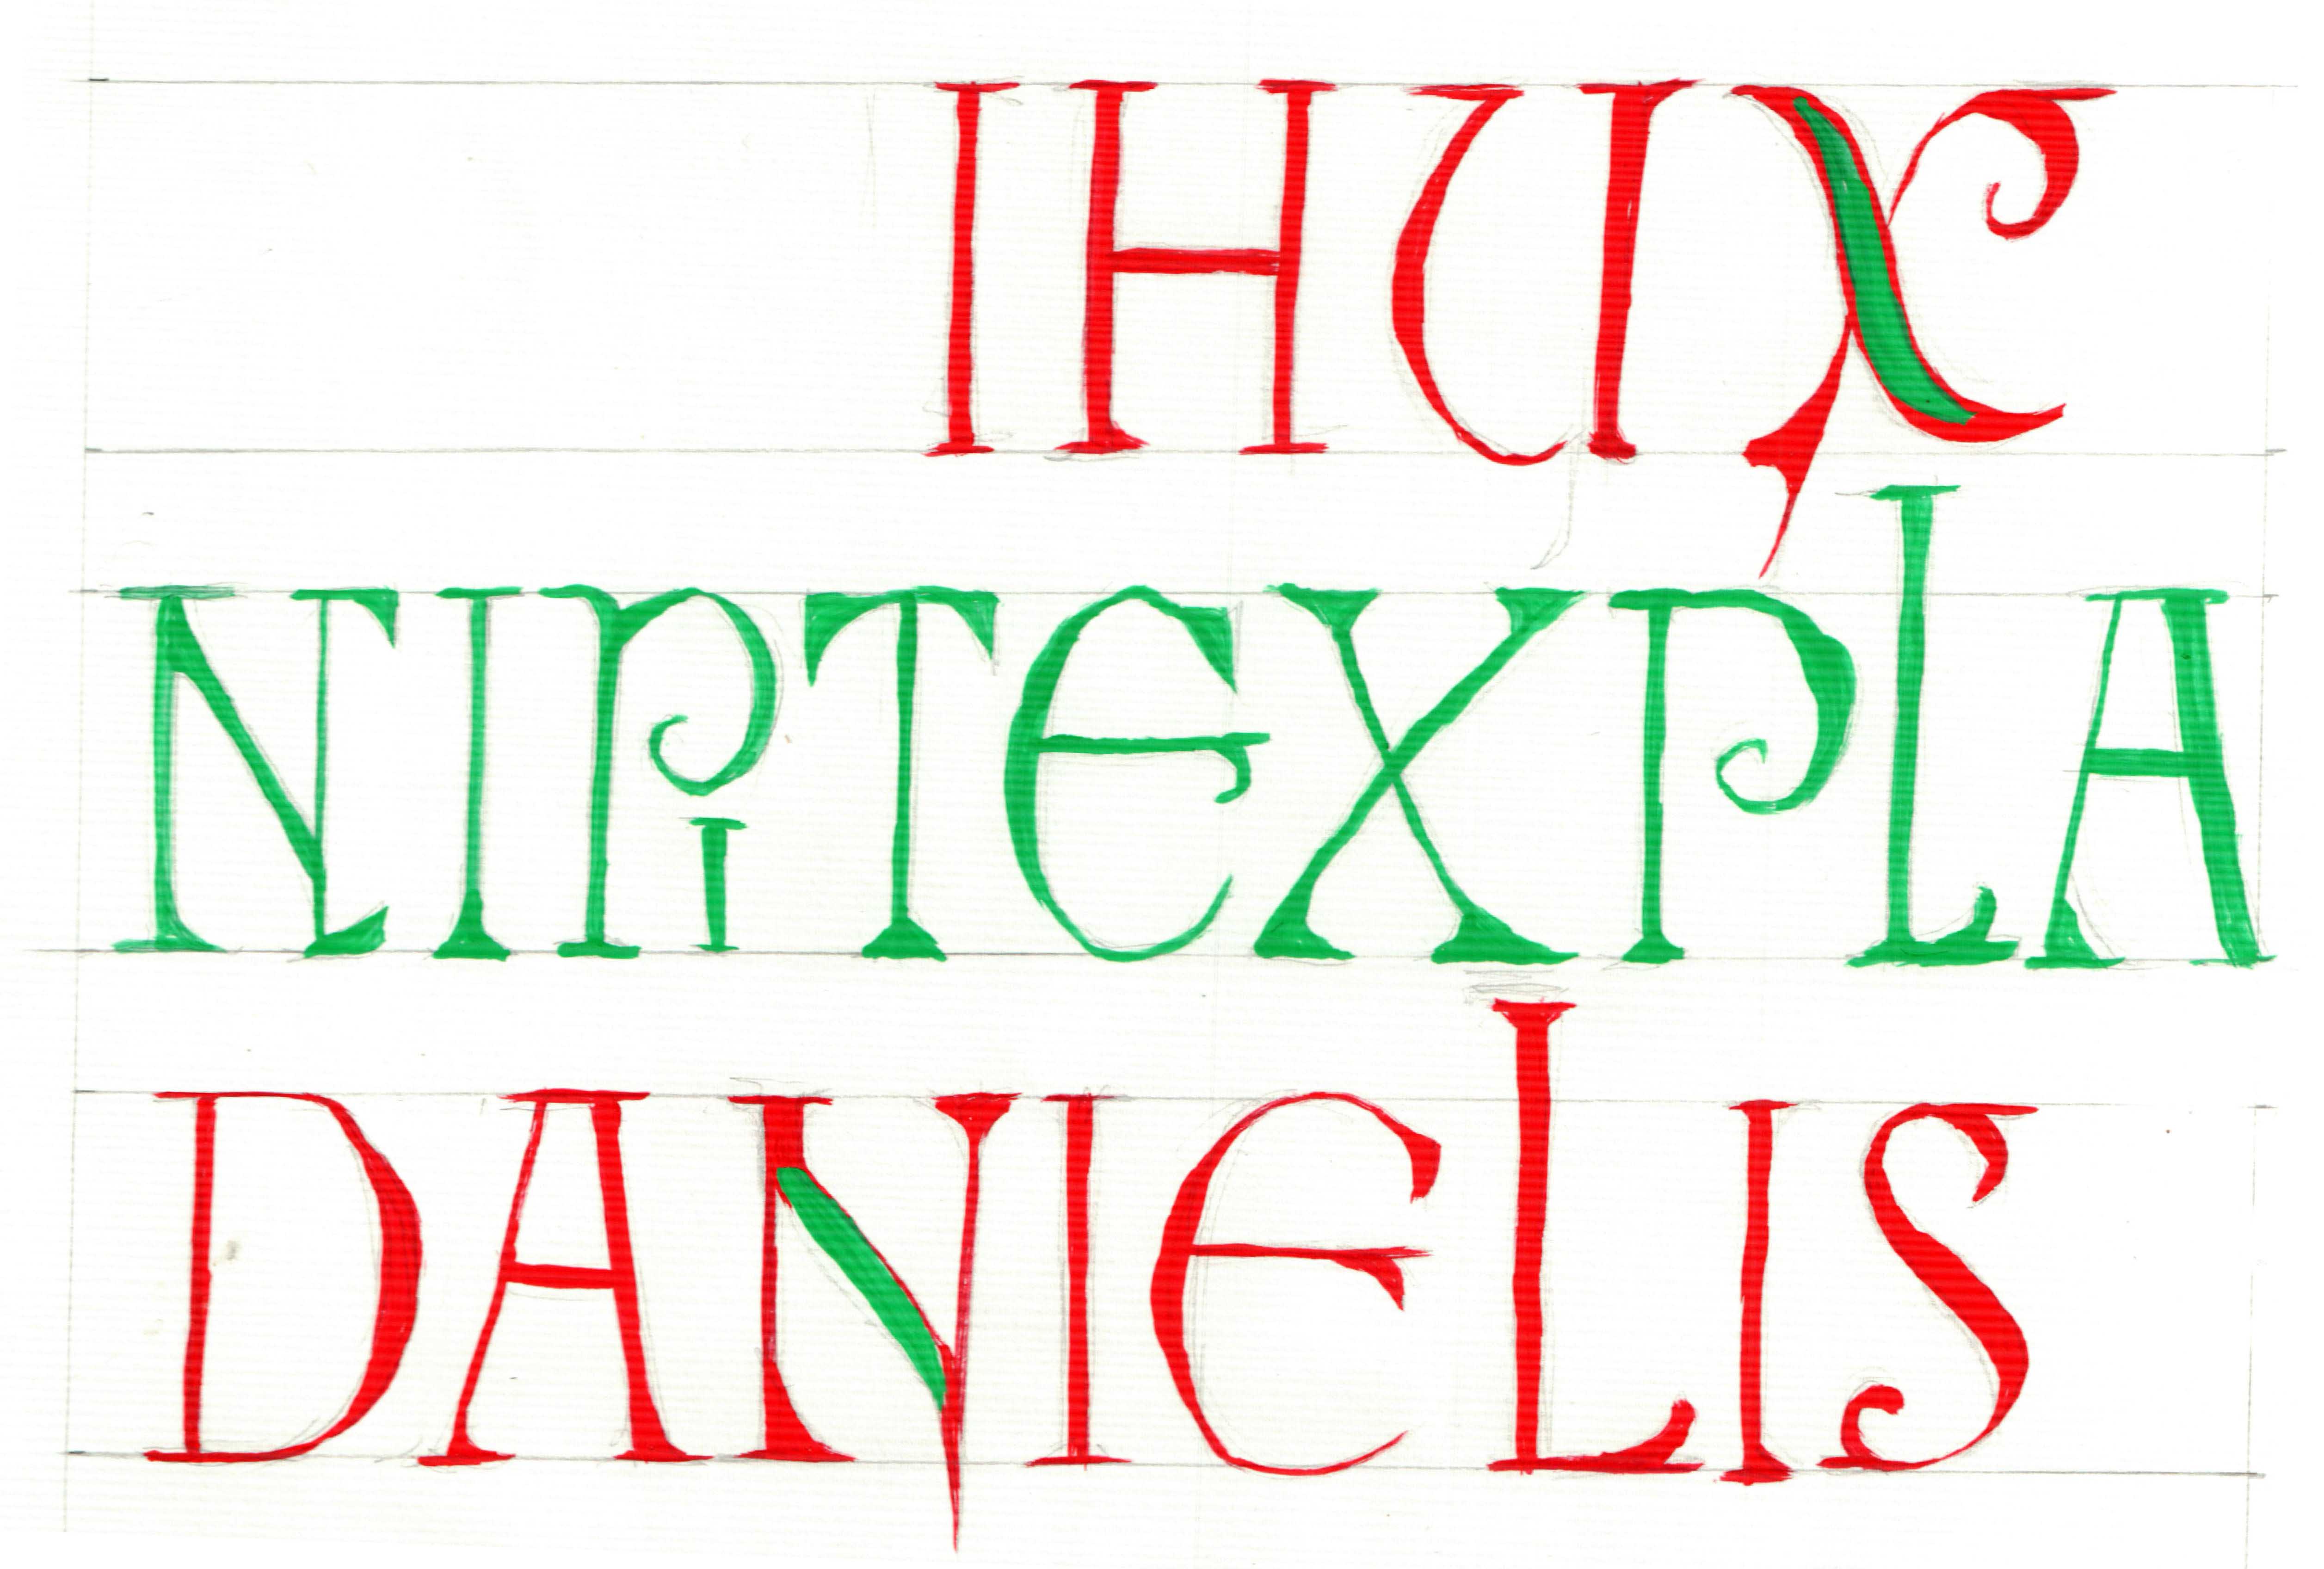 IHUX
NIPITEXPLA
DANIELIS